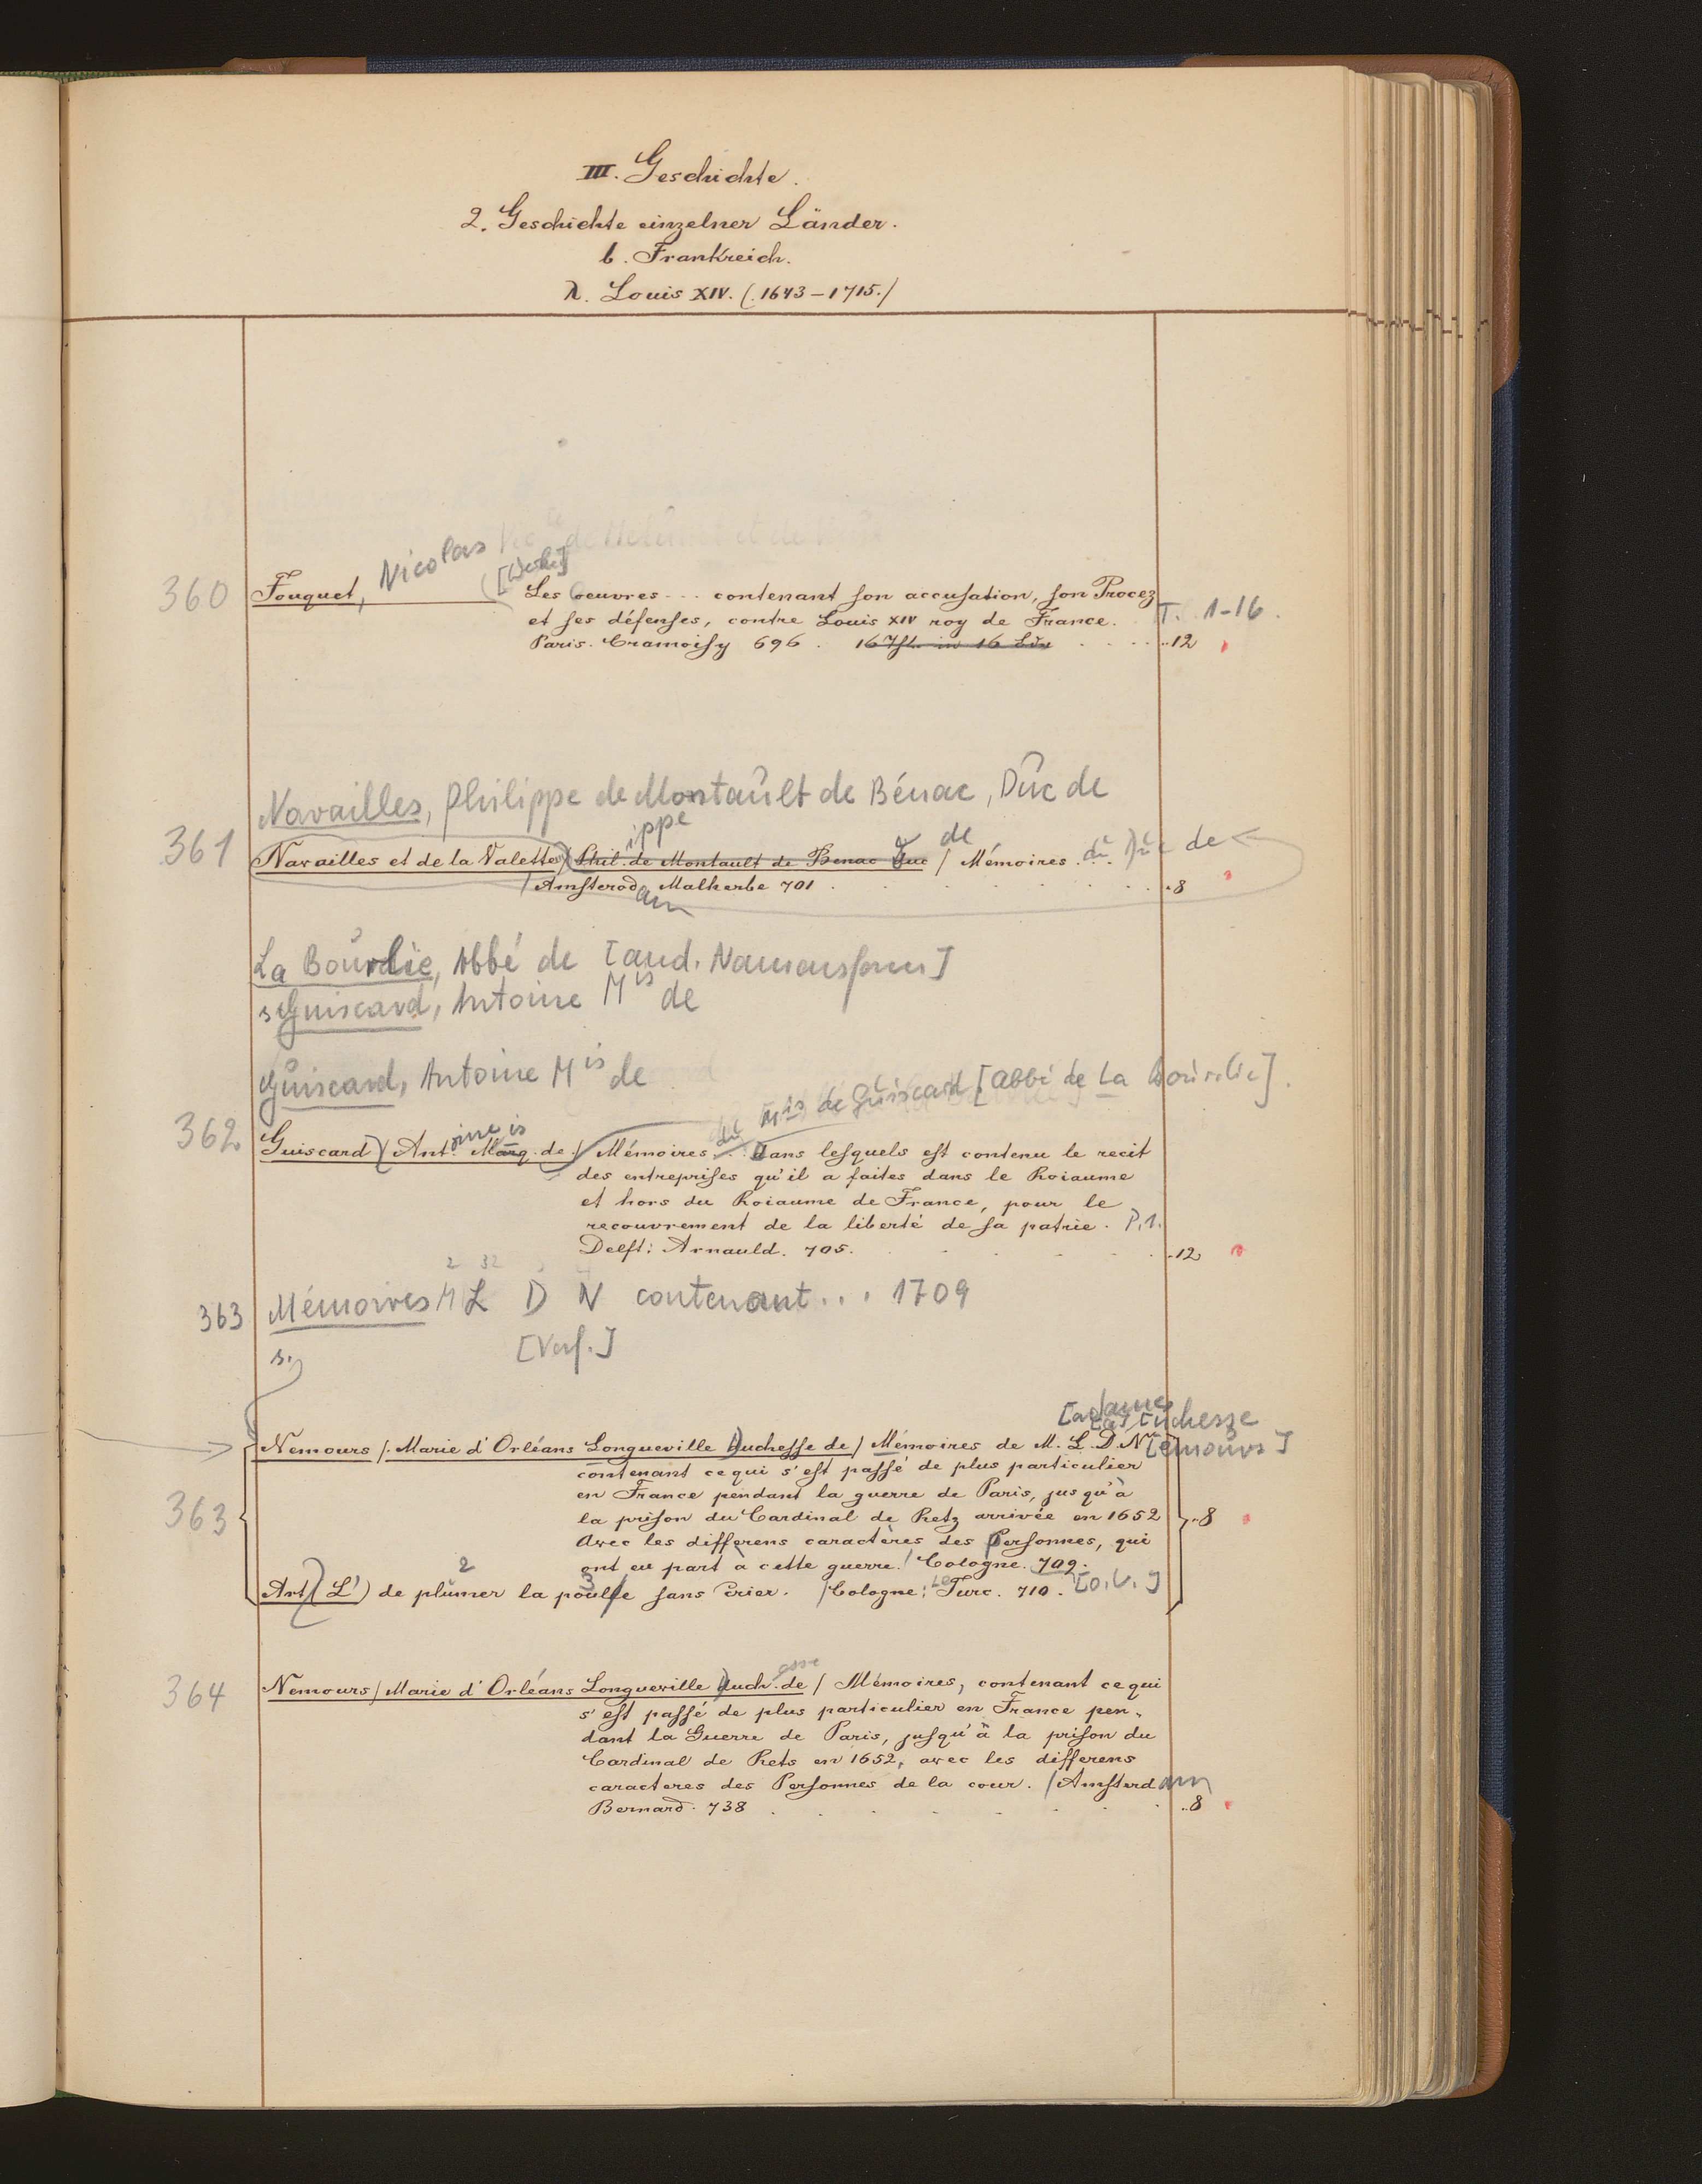 III. Geschichte.
2. Geschichte einzelner Länder.
b. Frankreich.
λ. Louis XIV. (1643–1715.)
Nicolas
[Werke]
360 Fouquet, Les Oeuvres ... contenant son accusation, son Procez
et ses défenses, contre Louis XIV roy de France. T. 1-16.
Paris. Cramoisy 696. 16 Tfl. in 16 Bdn ..12
Navailles, Philippe de Montault de Bénac, Duc de
ippe de
361 Navailles et de la Valette) Phil. de Montault de Benac Duc / Mémoires ... du Duc de
/Amsterod Malherbe 701 ..8
am
La Bourlie, Abbé de [and. Namensform]
s. Guiscard, Antoine Mis de
Guiscard, Antoine Mis de
du Mis de Guiscard [Abbé de La Bourlie].
oine is
362 Guiscard (Ant. Marq. de / Mémoires ... Dans lesquels est contenu le recit
des entreprises qu'il a faites dans le Roiaume
et hors du Roiaume de France, pour le
recouvrement de la liberté de sa patrie. P.1.
Delft: Arnauld. 705. ..12
2 32
363 Mémoires M L D N contenant ... 1709
s. [Verf.]
[adame
[a] Duchesse
Nemours /. Marie d'Orléans Longueville Duchesse de / Mémoires de M. L. D. N [emours]
contenant ce qui s'est passé de plus particulier
en France pendant la guerre de Paris, jusqu'à
363 la prison du Cardinal de Retz arrivée en 1652 ..8
Avec les differens caractères des Personnes, qui
ont eu part à cette guerre. / Cologne. 709.
2 3
Art (L') de plumer la poulle sans crier. /Cologne: Le Turc. 710. [O. U.]
esse
364 Nemours / Marie d'Orléans Longueville Duch. de / Mémoires, contenant ce qui
s'est passé de plus particulier en France pen-
dant la Guerre de Paris, jusqu'à la prison du
Cardinal de Rets en 1652, avec les differens
caracteres des Personnes de la cour. /Amsterdam
Bernard. 738 ..8